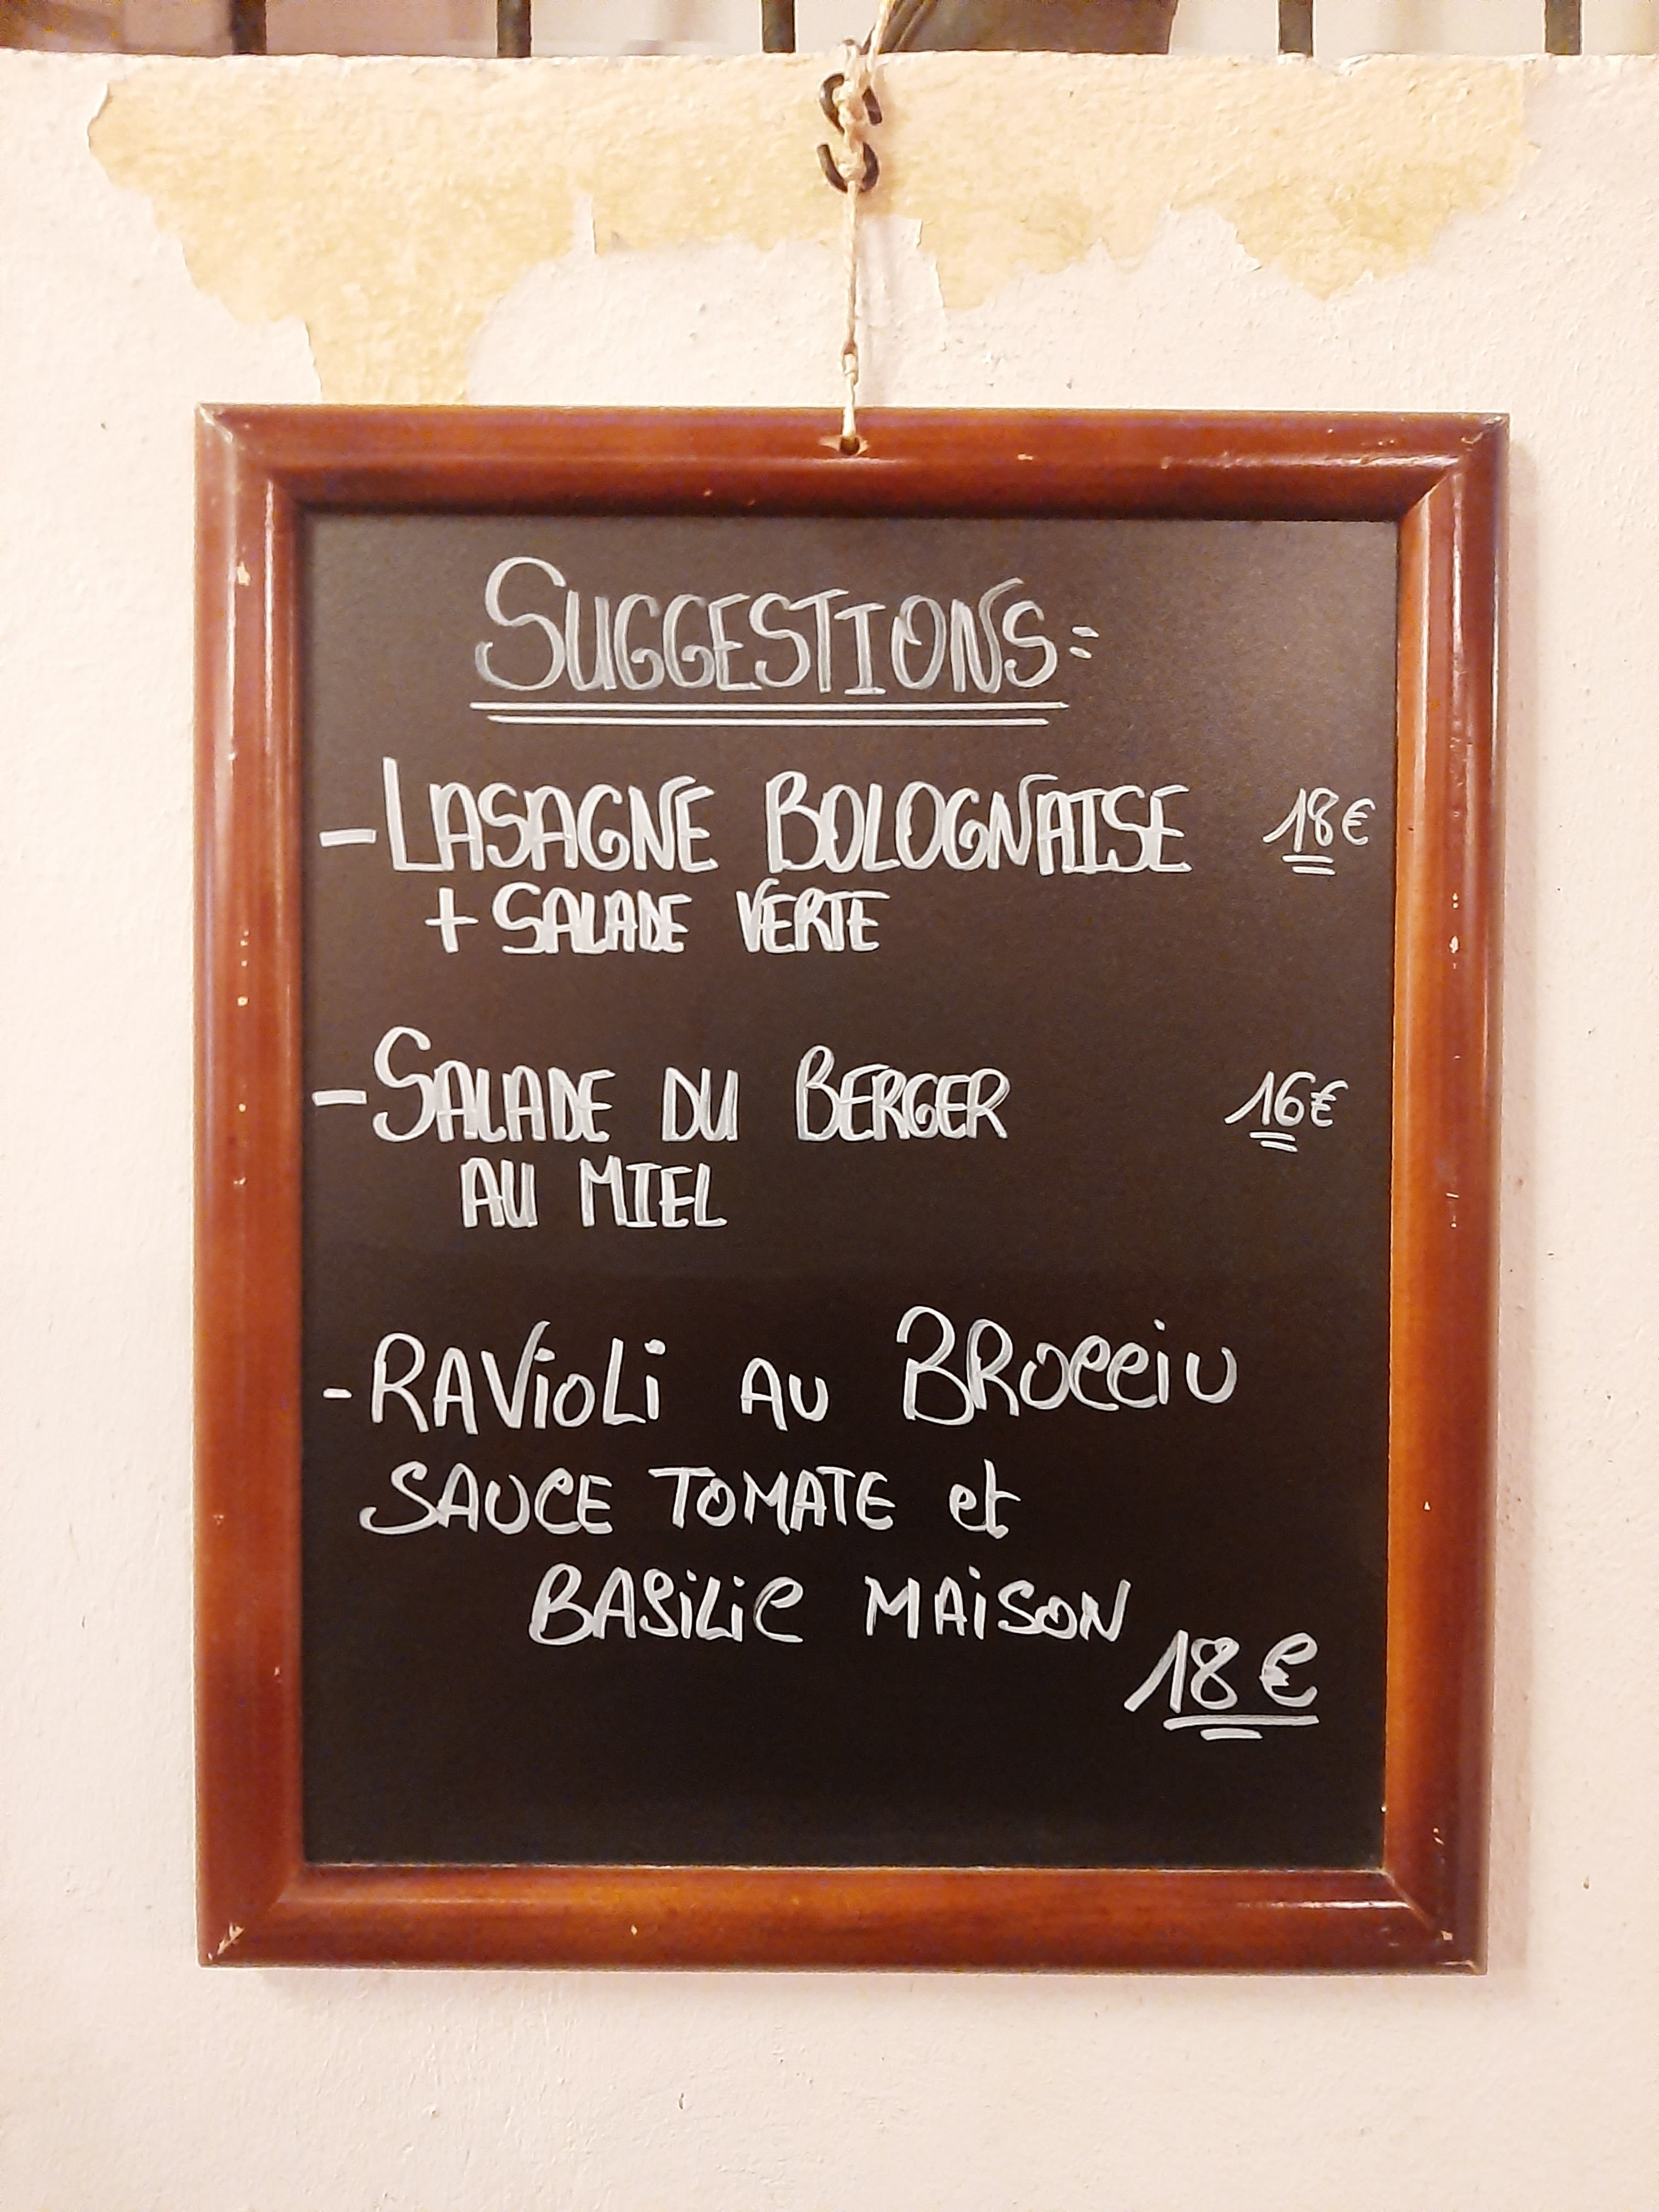 SUGGESTIONS:
- LASAGNE BOLOGNAISE 18€
+ SALADE VERTE
- SALADE DU BERGER 16€
AU MIEL
- RAVIOLI AU BROCCIU
SAUCE TOMATE et
BASILIC MAISON
18€